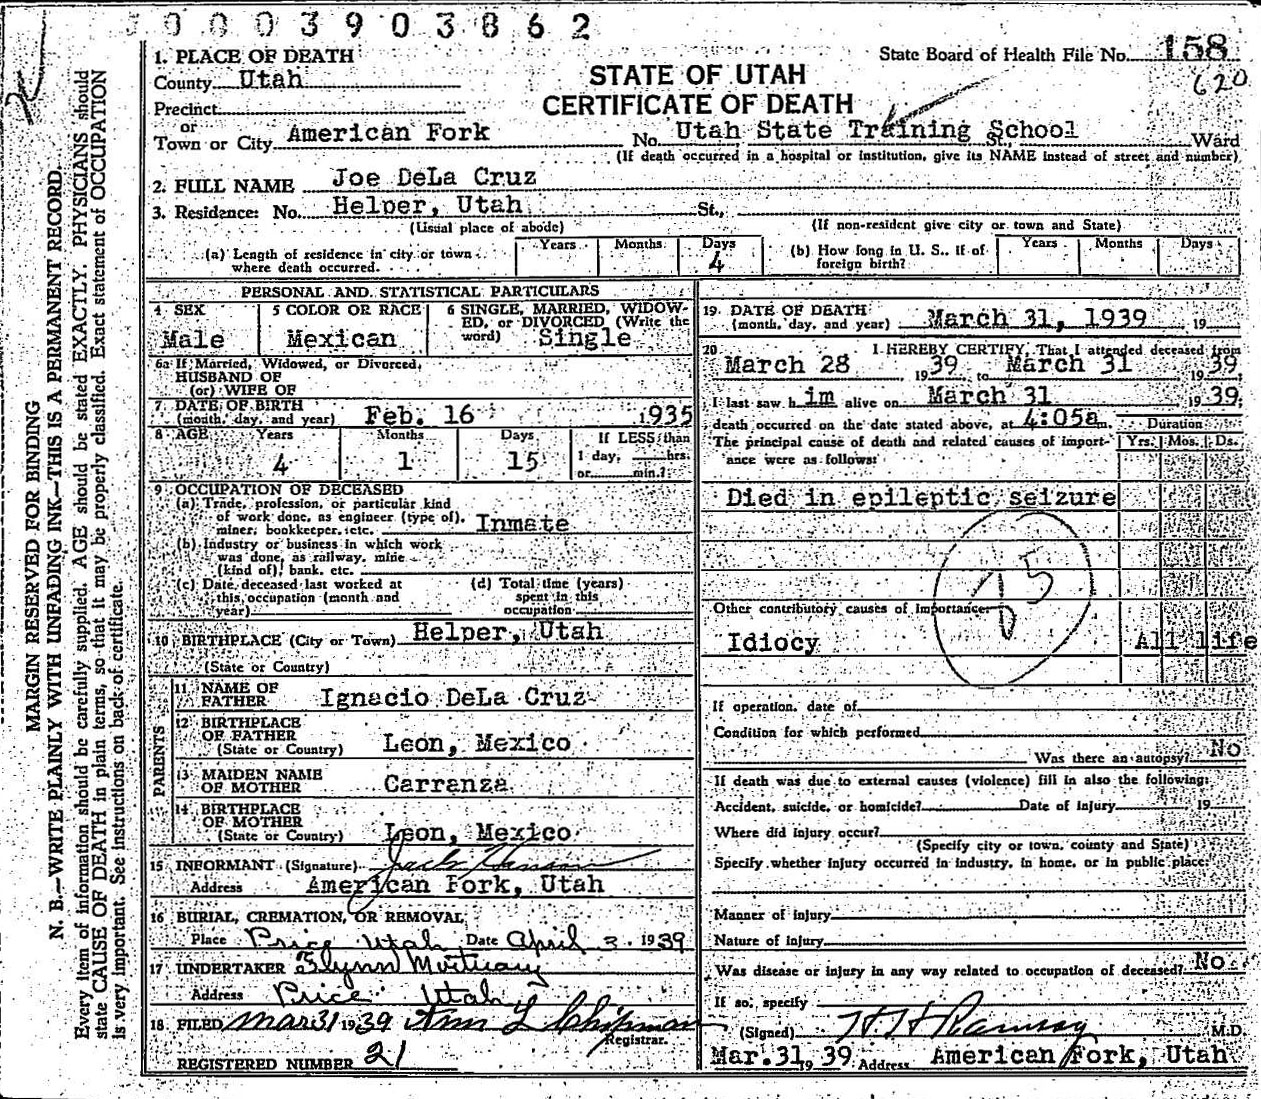 0003903862
State Board of Health File No. 158
620
STATE OF UTAH
CERTIFICATE OF DEATH
1. PLACE OF DEATH
County Utah
Precinct
or
Town or City American Fork No. Utah State Training School St., Ward
(If death occurred in a hospital or institution, give its NAME instead of street and number)
2. FULL NAME Joe DeLa Cruz
3. Residence: No. Helper, Utah St.,
(Usual place of abode) (If non-resident give city or town and State)
(a) Length of residence in city or town where death occurred. Years Months Days 4
(b) How long in U. S., if of foreign birth? Years Months Days
PERSONAL AND STATISTICAL PARTICULARS
4 SEX Male
5 COLOR OR RACE Mexican
6 SINGLE, MARRIED, WIDOWED, or DIVORCED (Write the word) Single
6a If Married, Widowed, or Divorced,
HUSBAND OF
(or) WIFE OF
7 DATE OF BIRTH
(month, day, and year) Feb. 16 1935
8 AGE Years 4 Months 1 Days 15 If LESS than 1 day, hrs. or min.?
9 OCCUPATION OF DECEASED
(a) Trade, profession, or particular kind
of work done, as engineer (type of),
miner, bookkeeper, etc. Inmate
(b) Industry or business in which work
was done, as railway, mine
(kind of), bank, etc.
(c) Date deceased last worked at
this occupation (month and
year)
(d) Total time (years)
spent in this
occupation
10 BIRTHPLACE (City or Town) Helper, Utah
(State or Country)
PARENTS
11 NAME OF
FATHER Ignacio DeLa Cruz
12 BIRTHPLACE
OF FATHER
(State or Country) Leon, Mexico
13 MAIDEN NAME
OF MOTHER Carranza
14 BIRTHPLACE
OF MOTHER
(State or Country) Leon, Mexico
15 INFORMANT (Signature)
Address American Fork, Utah
16 BURIAL, CREMATION, OR REMOVAL
Place Price Utah Date April 3. 1939
17 UNDERTAKER Flynn Mortuary
Address Price Utah
18 FILED Mar 31 1939 Ann L Chipman
Registrar.
REGISTERED NUMBER 21
19 DATE OF DEATH
(month, day, and year) March 31, 1939 19
20 I HEREBY CERTIFY, That I attended deceased from
March 28 1939 to March 31 1939
I last saw him alive on March 31 1939,
death occurred on the date stated above, at 4:05a m. Duration
The principal cause of death and related causes of importance were as follows: Yrs. Mos. Ds.
Died in epileptic seizure
85
Other contributory causes of importance:
Idiocy All life
If operation, date of
Condition for which performed
Was there an autopsy? No
If death was due to external causes (violence) fill in also the following:
Accident, suicide, or homicide? Date of injury 19
Where did injury occur?
(Specify city or town, county and State)
Specify whether injury occurred in industry, in home, or in public place:
Manner of injury
Nature of injury
Was disease or injury in any way related to occupation of deceased? No
If so, specify
(Signed) H H Ramsay M.D.
Mar. 31, 1939 Address American Fork, Utah
MARGIN RESERVED FOR BINDING
N. B.—WRITE PLAINLY WITH UNFADING INK—THIS IS A PERMANENT RECORD.
Every item of information should be carefully supplied. AGE should be stated EXACTLY. PHYSICIANS should
state CAUSE OF DEATH in plain terms, so that it may be properly classified. Exact statement of OCCUPATION
is very important. See instructions on back of certificate.